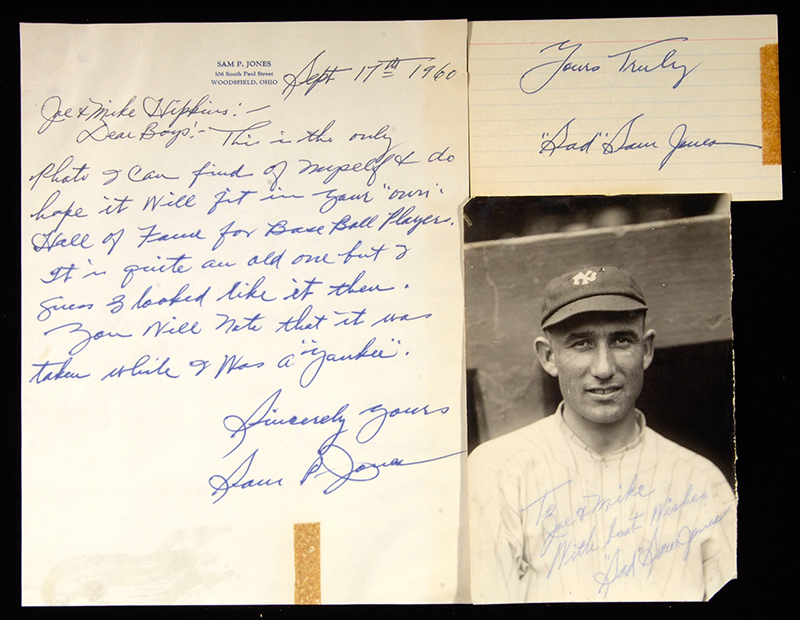 SAM P. JONES
106 South Paul Street
WOODSFIELD, OHIO
Sept 17th 1960
Joe & Mike Hipkins:-
Dear Boys:- This is the only
Photo I Can find of Myself & do
hope it Will fit in your "own"
Hall of Fame for Base Ball Players.
It is quite an old one but I
guess I looked like it then.
You Will Note that it was
taken while I Was a "Yankee".
Sincerely Yours
Sam P. Jones
Yours Truly
"Sad" Sam Jones
NY
To
Joe & Mike
With best Wishes
"Sad" Sam Jones